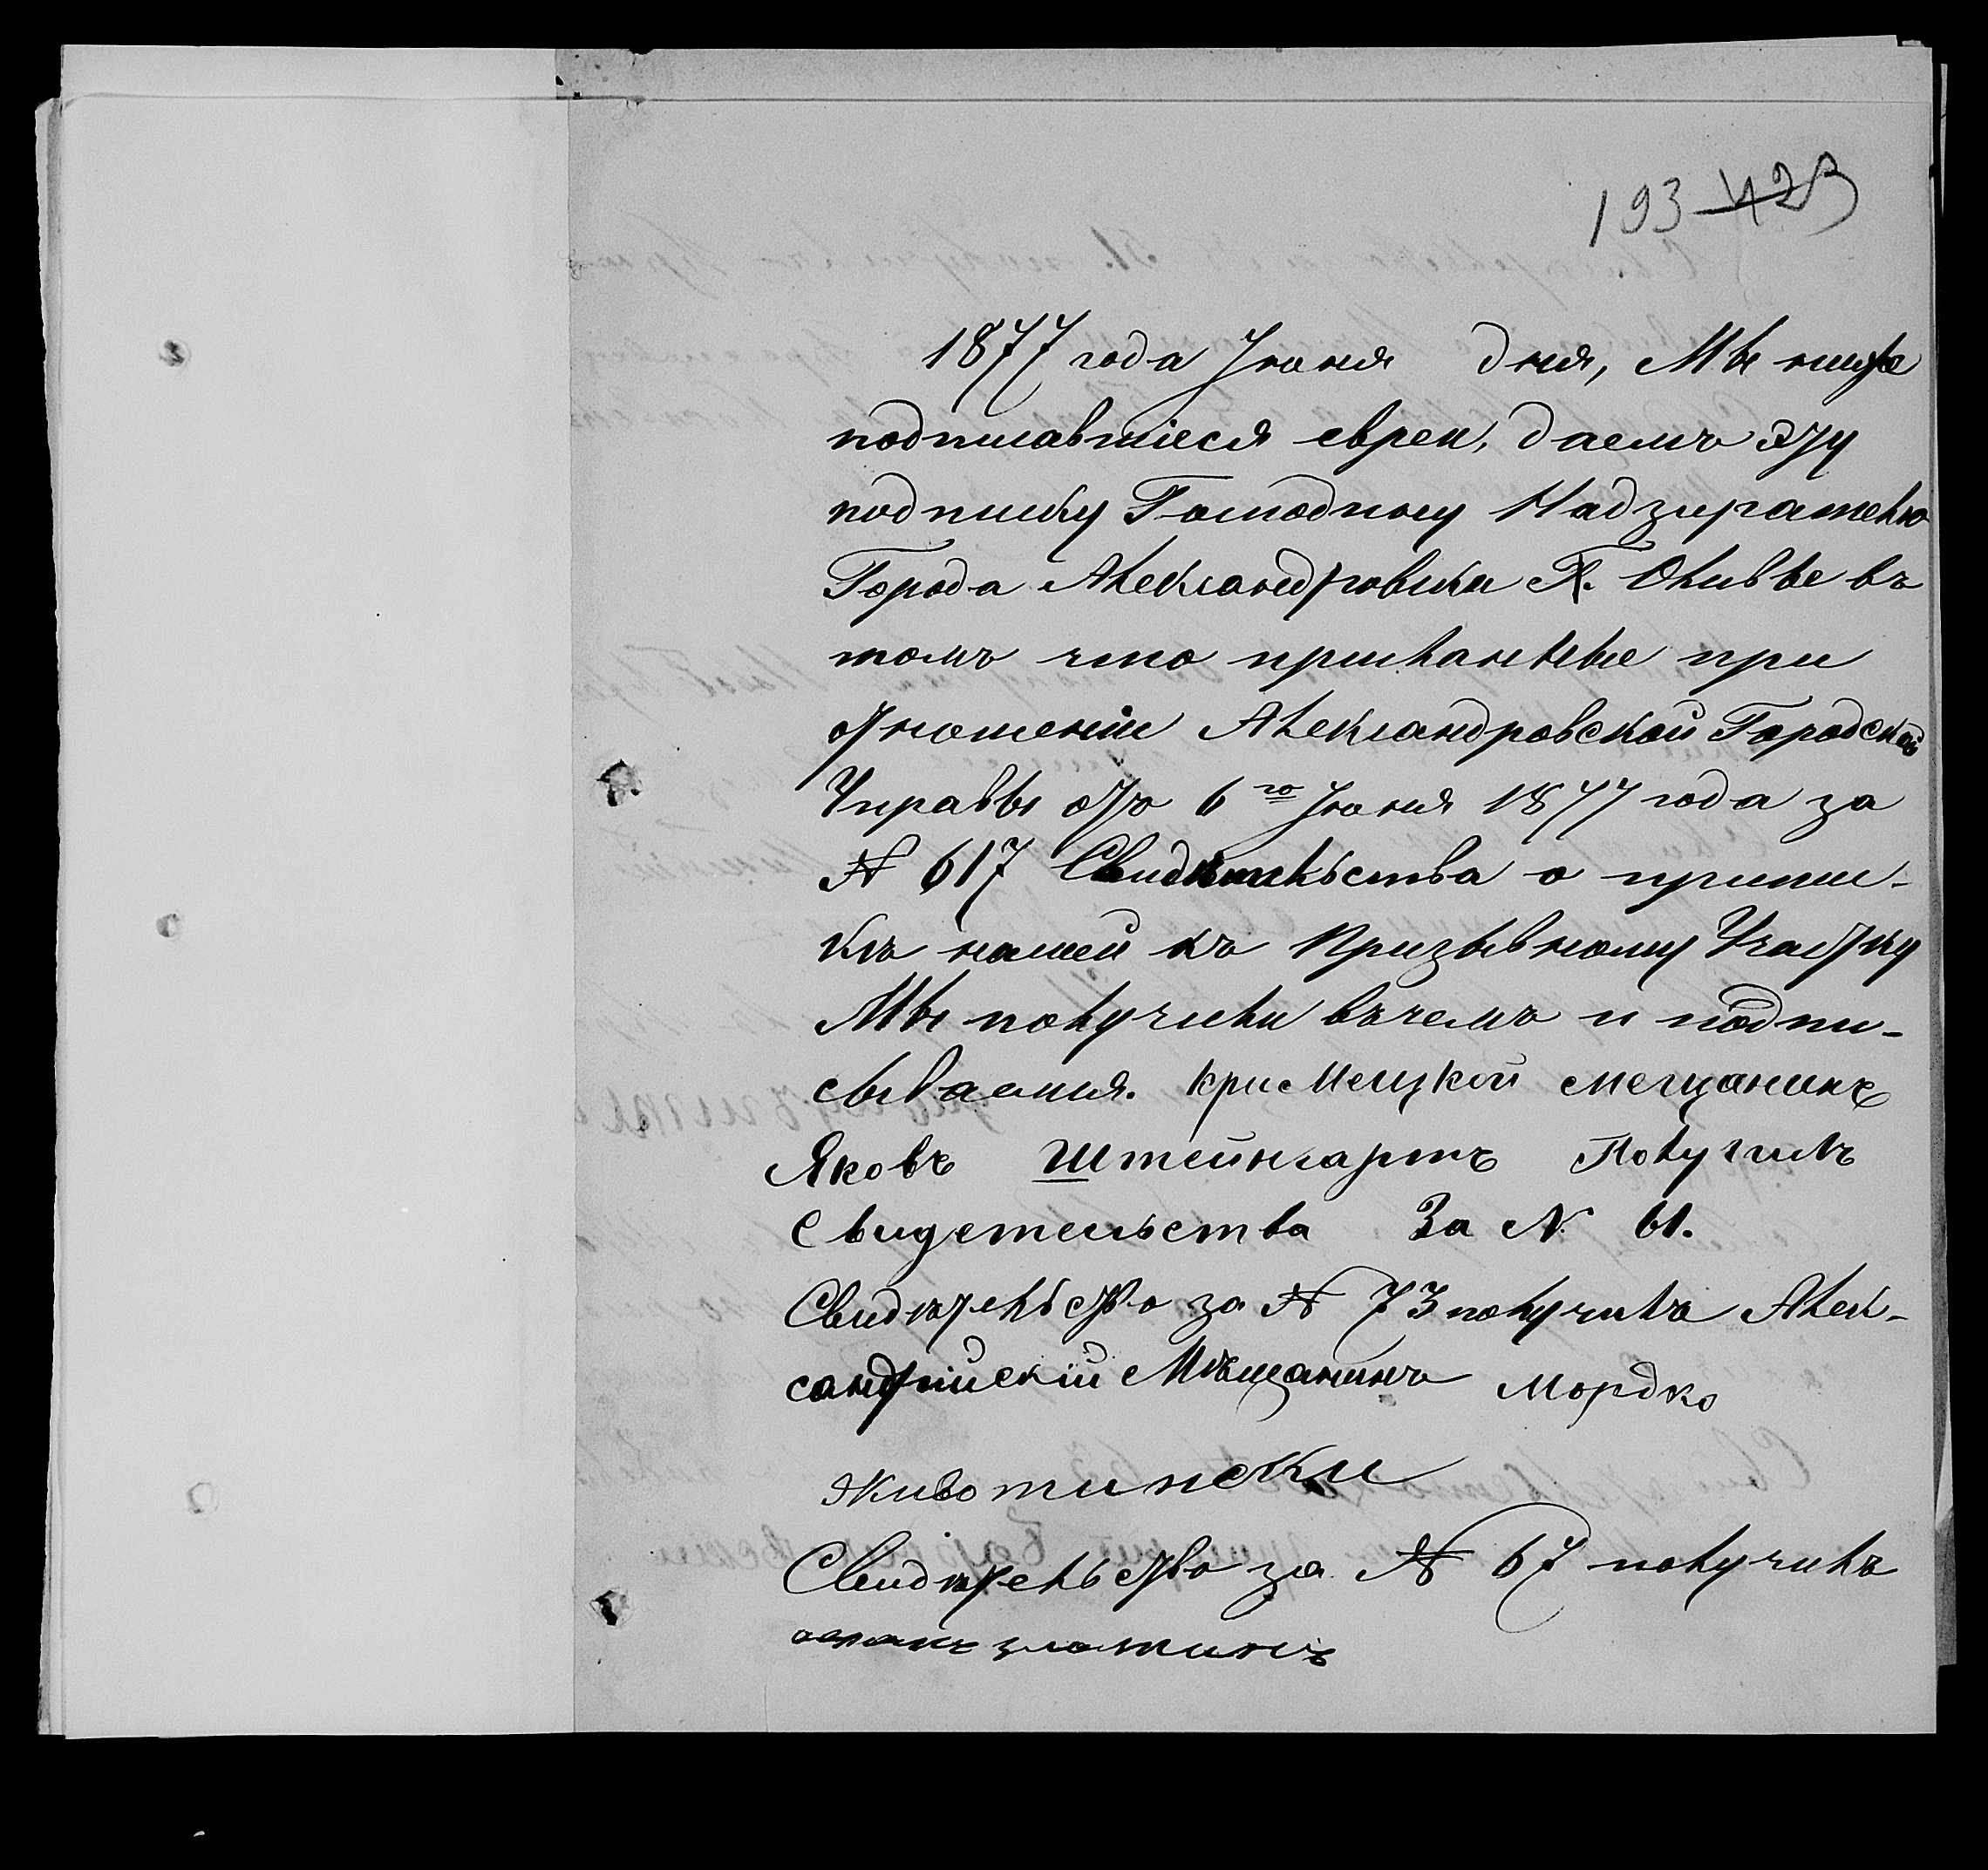 193 423
1877 года Іюня дня, Мы ниже
подписавшіеся евреи, даемъ эту
подписку Господину Надзирателю
Города Александровска Г. Оливье въ
томъ что присланные при
отношеніи Александровской Городской
Управы отъ 6го Іюня 1877 года за
№ 617 Свидѣтельства о припис-
кѣ нашей къ Призывному Участку
Мы получили въ чемъ и подпи-
сываемся. мещанинъ
Яковъ Штейнгартъ Получилъ
Свидетельства За № 61.
Свидѣтельство за № 73 получилъ Алек-
сандрійскій Мѣщанинъ Мордко
Животински
Свидѣтельство за № 67 получилъ